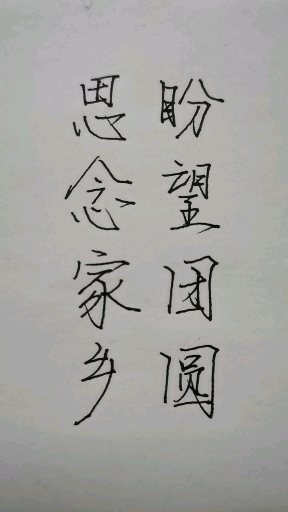 盼望团圆
思念家乡